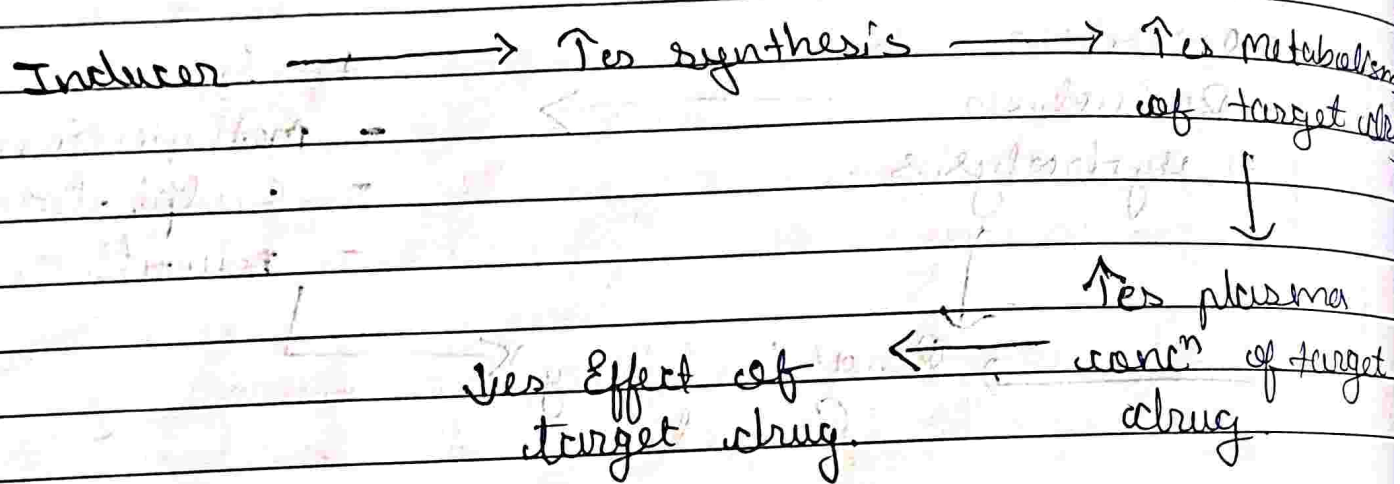 Inducer → ↑es synthesis → ↑es Metabolism
of target
↓
↑es plasma
concⁿ of target
drug.
←
↓es Effect of
target drug.